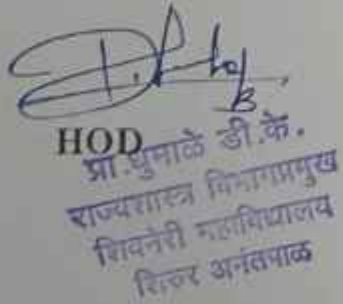 HOD
प्रा. धुमाळे डी.के.
राज्यशास्त्र विभागप्रमुख
शिवनेरी महाविद्यालय
शिरुर अनंतपाळ